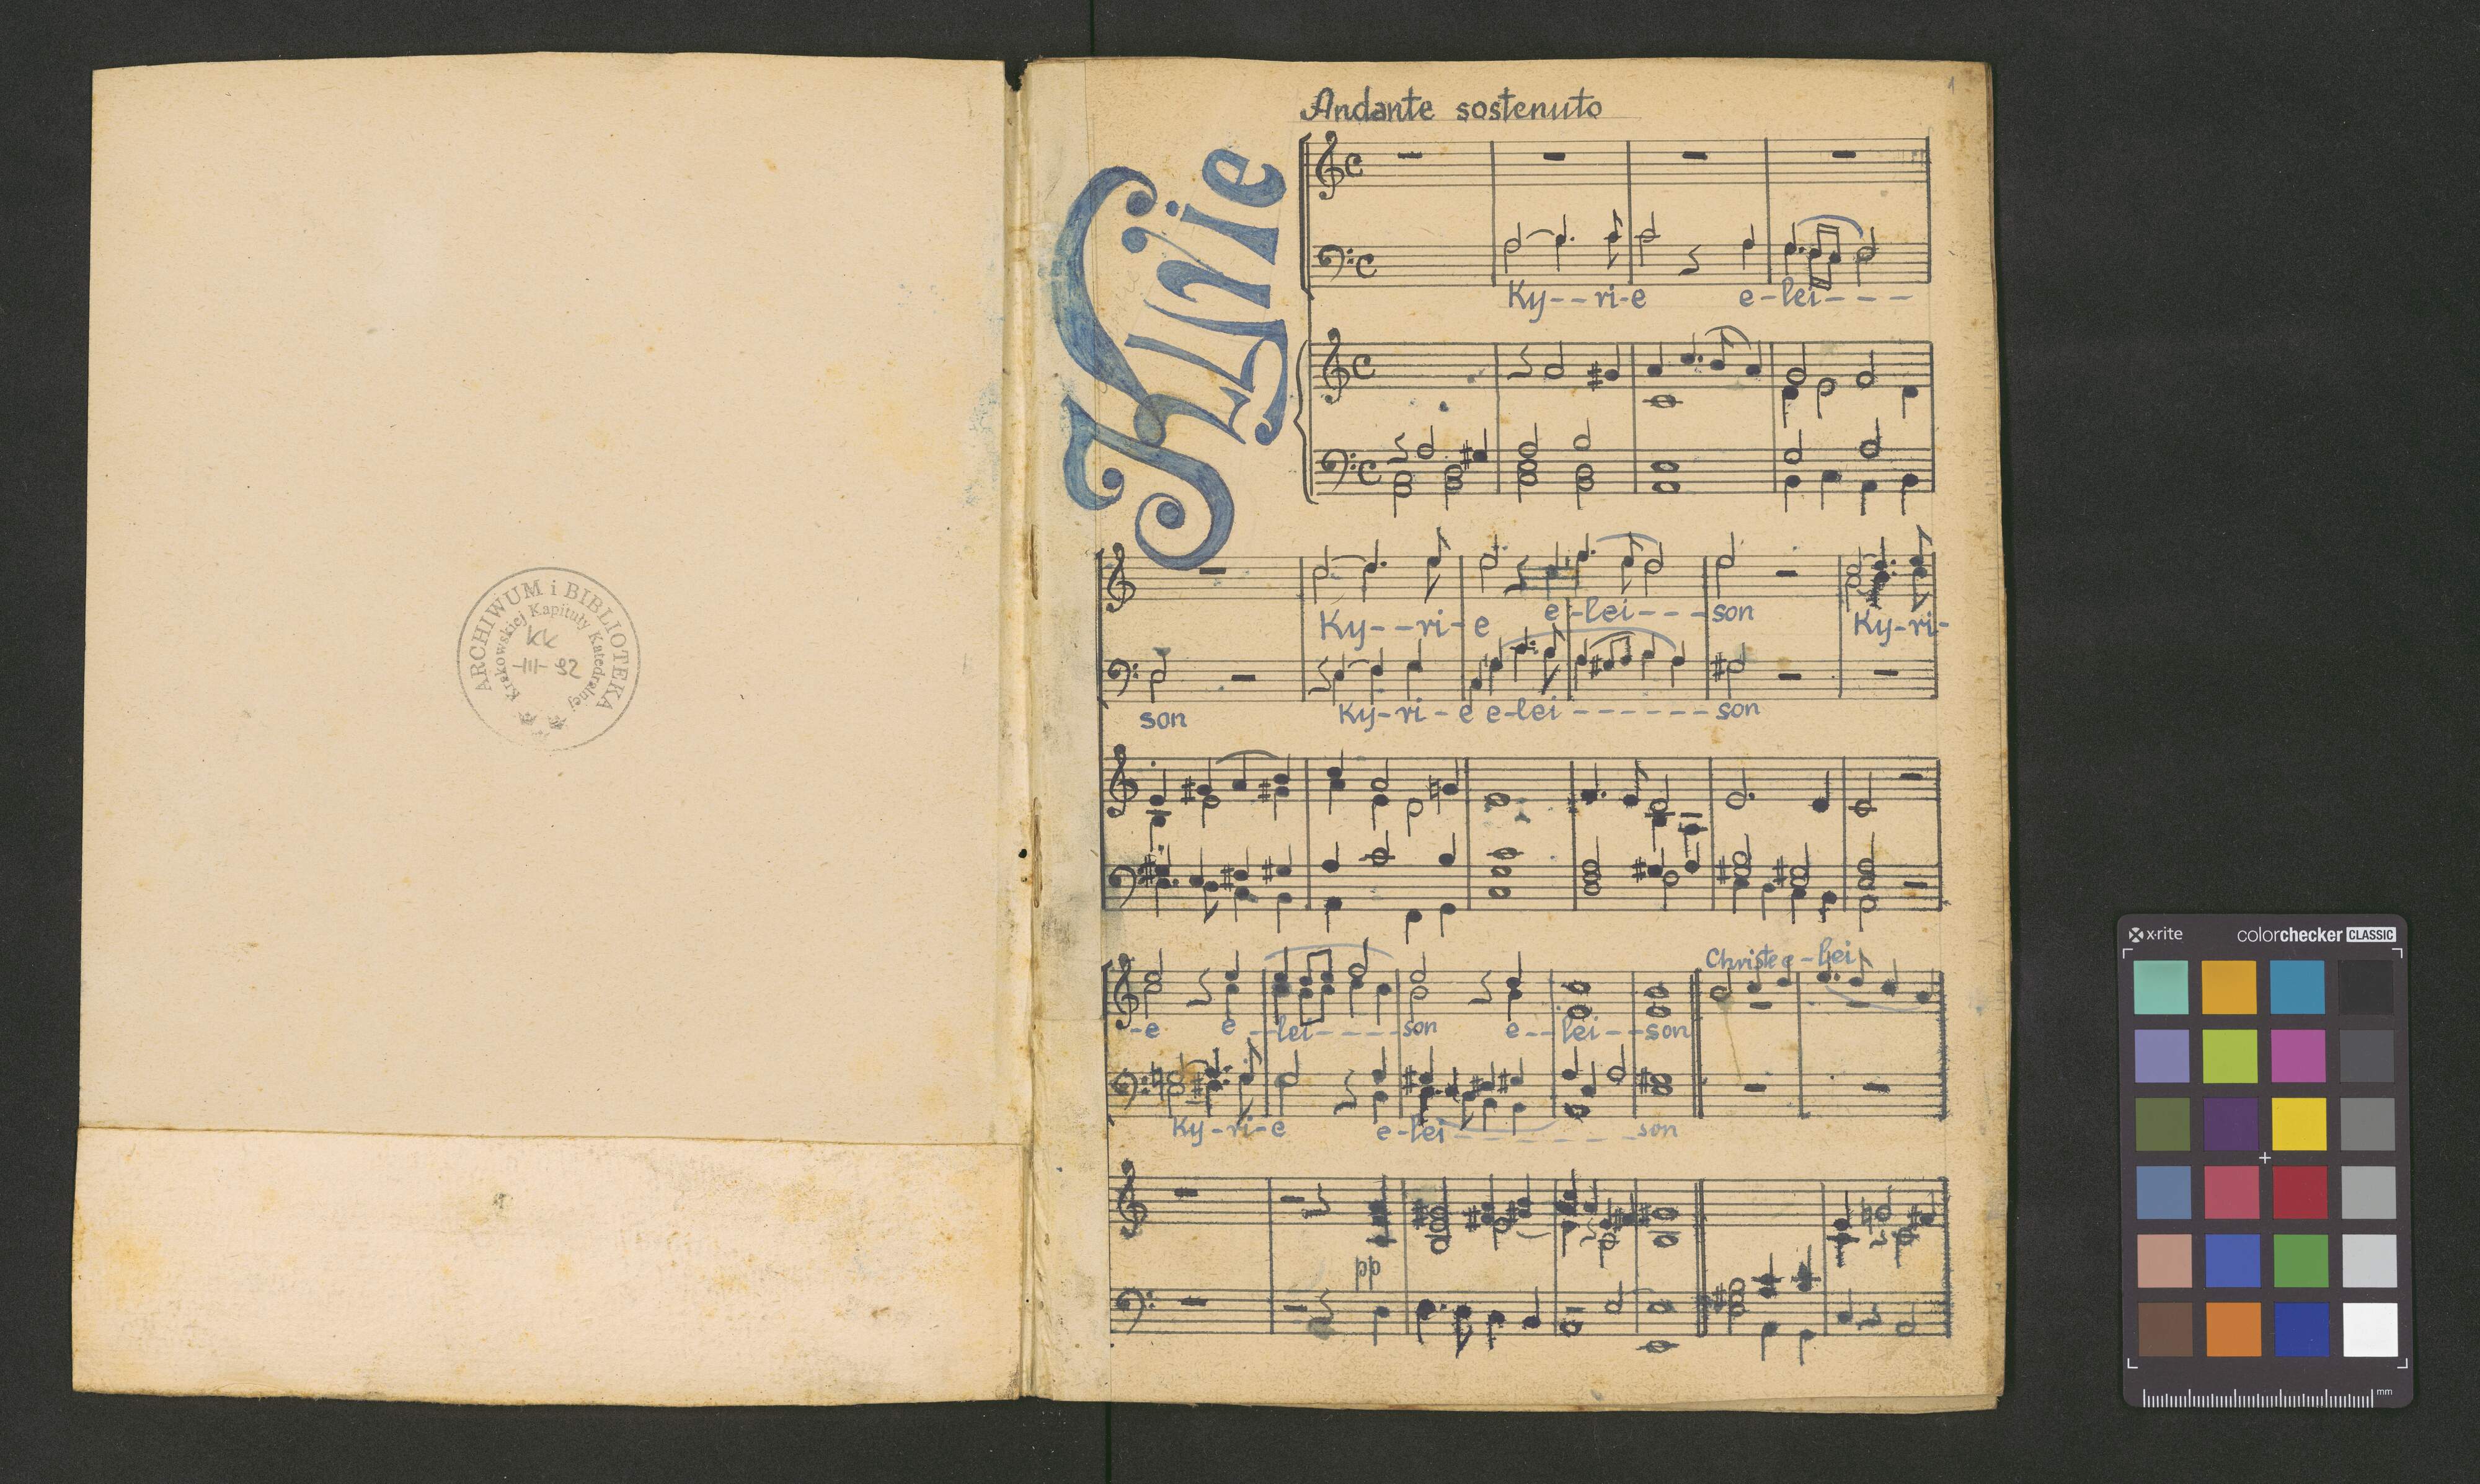 ARCHIWUM i BIBLIOTEKA
Krakowskiej Kapituły Katedralnej
KK
-III- 92
1
Andante sostenuto
Kyrie
Ky--ri-e e-lei----
Ky--ri-e e-lei---son Ky-ri-
son Ky-ri-e e-lei------son
Christe e-lei
-e e--lei----son e--lei--son
Ky-ri-e e-lei-------son
pp
x·rite colorchecker CLASSIC
mm